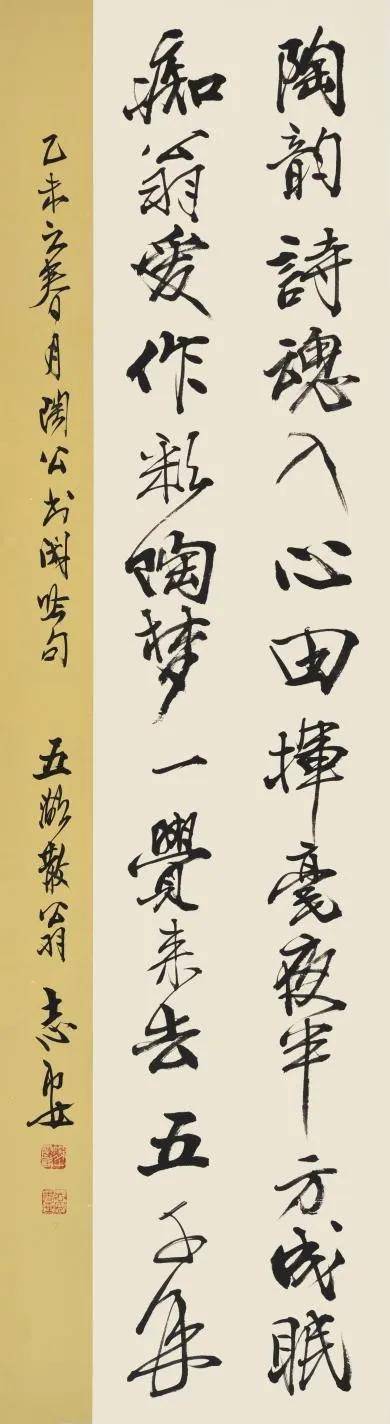 陶韵詩魂入心田揮毫夜半方成眠
痴翁爱作彩陶梦一覺来去五千年
乙未立春月陶公吟句 五湖散翁 志